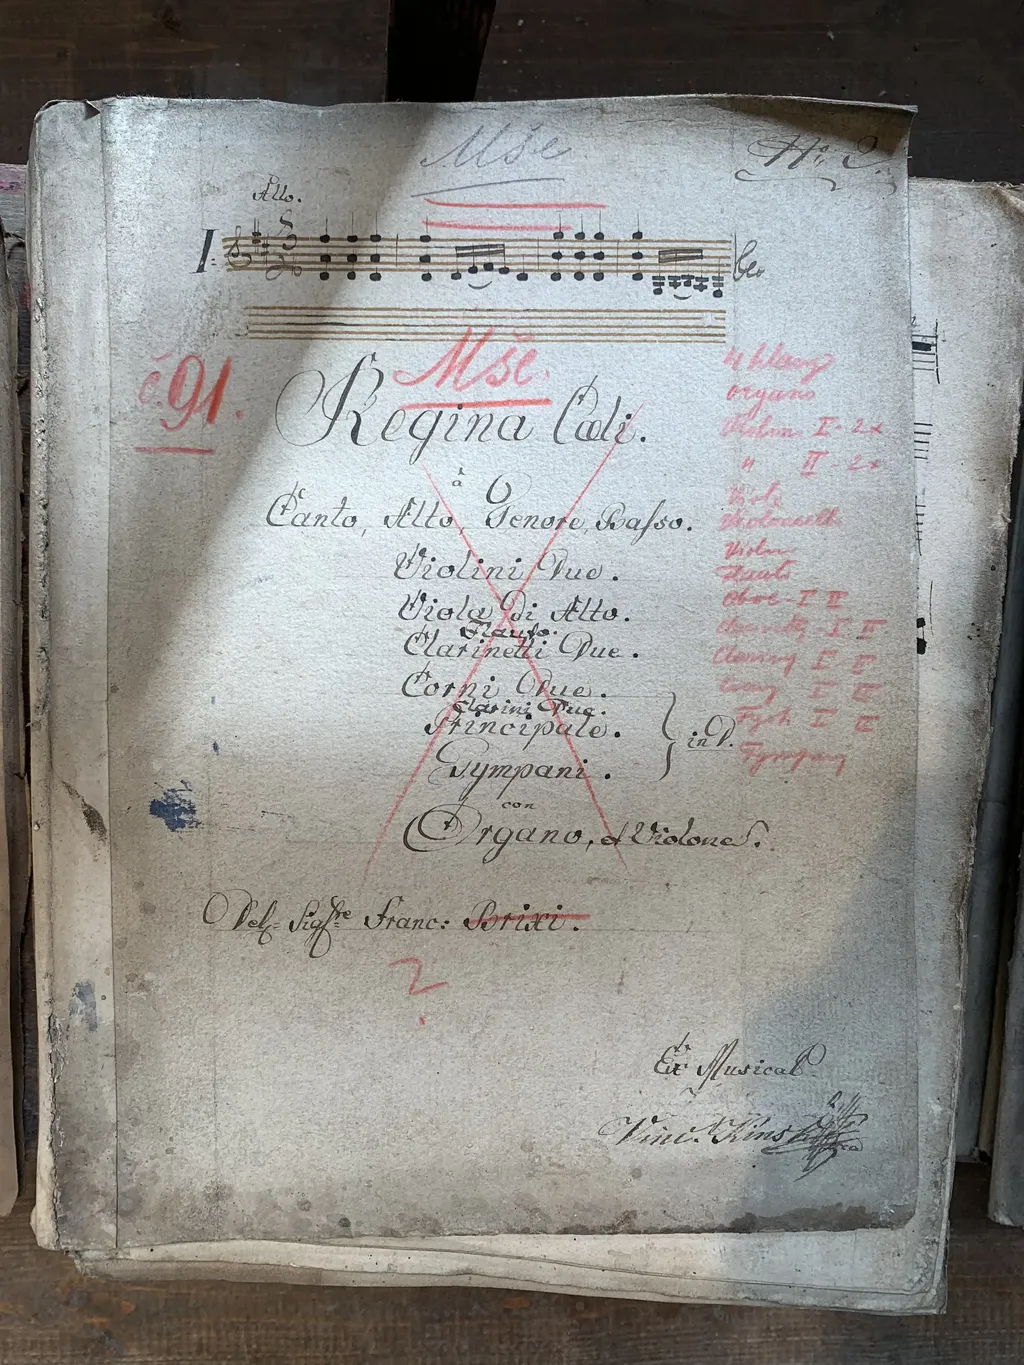 Mše
No. 2.
Allo.
I:
č 91.
Mše.
Regina Cœli.
à
Canto, Alto, Tenore, Basso.
Violini Due.
Viola Di Alto.
Flauto.
Clarinetti Due.
Corni Due.
Clarini Due.
Principale.
in D.
Tympani.
con
Organo, et Violone.
Del Sigre Franc: Brixi.
?
Ex Musical
Vinc.
4 hlasy
organo
Violin I - 2x
" II - 2x
Viola
Violoncello
Violon
Flauto
Oboe - I II
I II
I II
I II
I II
Tympany